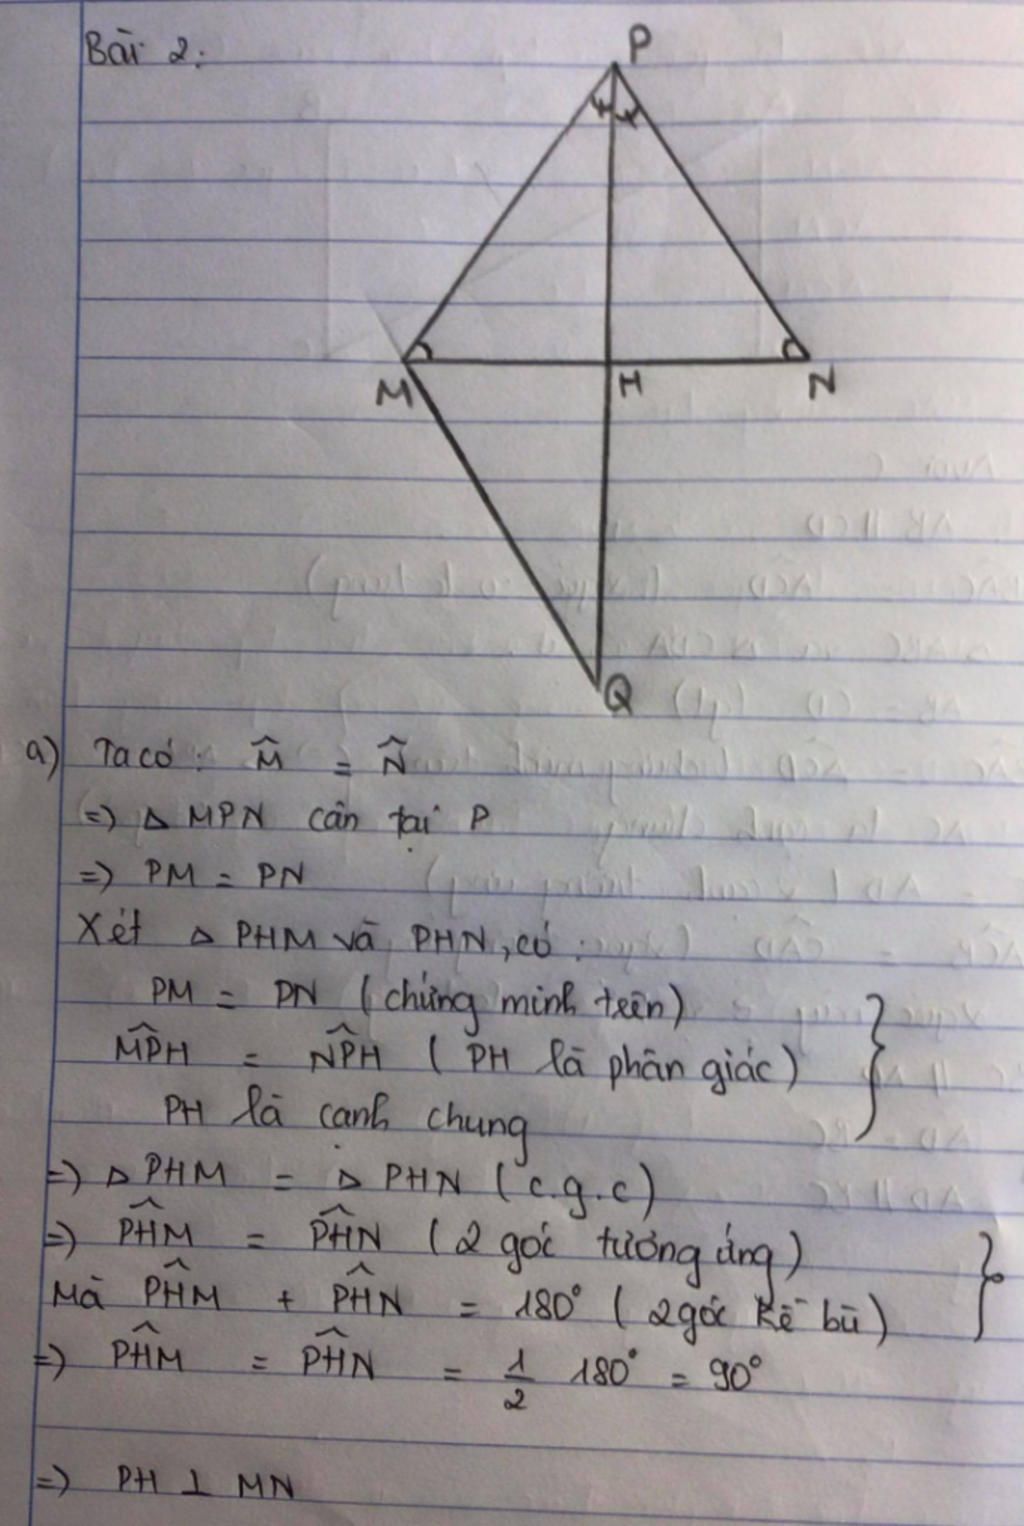 Bài 2:
P
M
H
N
Q
a) Ta có: M̂ = N̂
=> △ MPN cân tại P
=> PM = PN
Xét △ PHM và PHN, có:
PM = PN (chứng minh trên)
M̂PH = N̂PH ( PH là phân giác) }
PH là cạnh chung
=> △ PHM = △ PHN (c.g.c)
=> PĤM = PĤN (2 góc tương ứng)
Mà PĤM + PĤN = 180° ( 2 góc kề bù) }
=> PĤM = PĤN = 1/2 180° = 90°
=> PH ⊥ MN